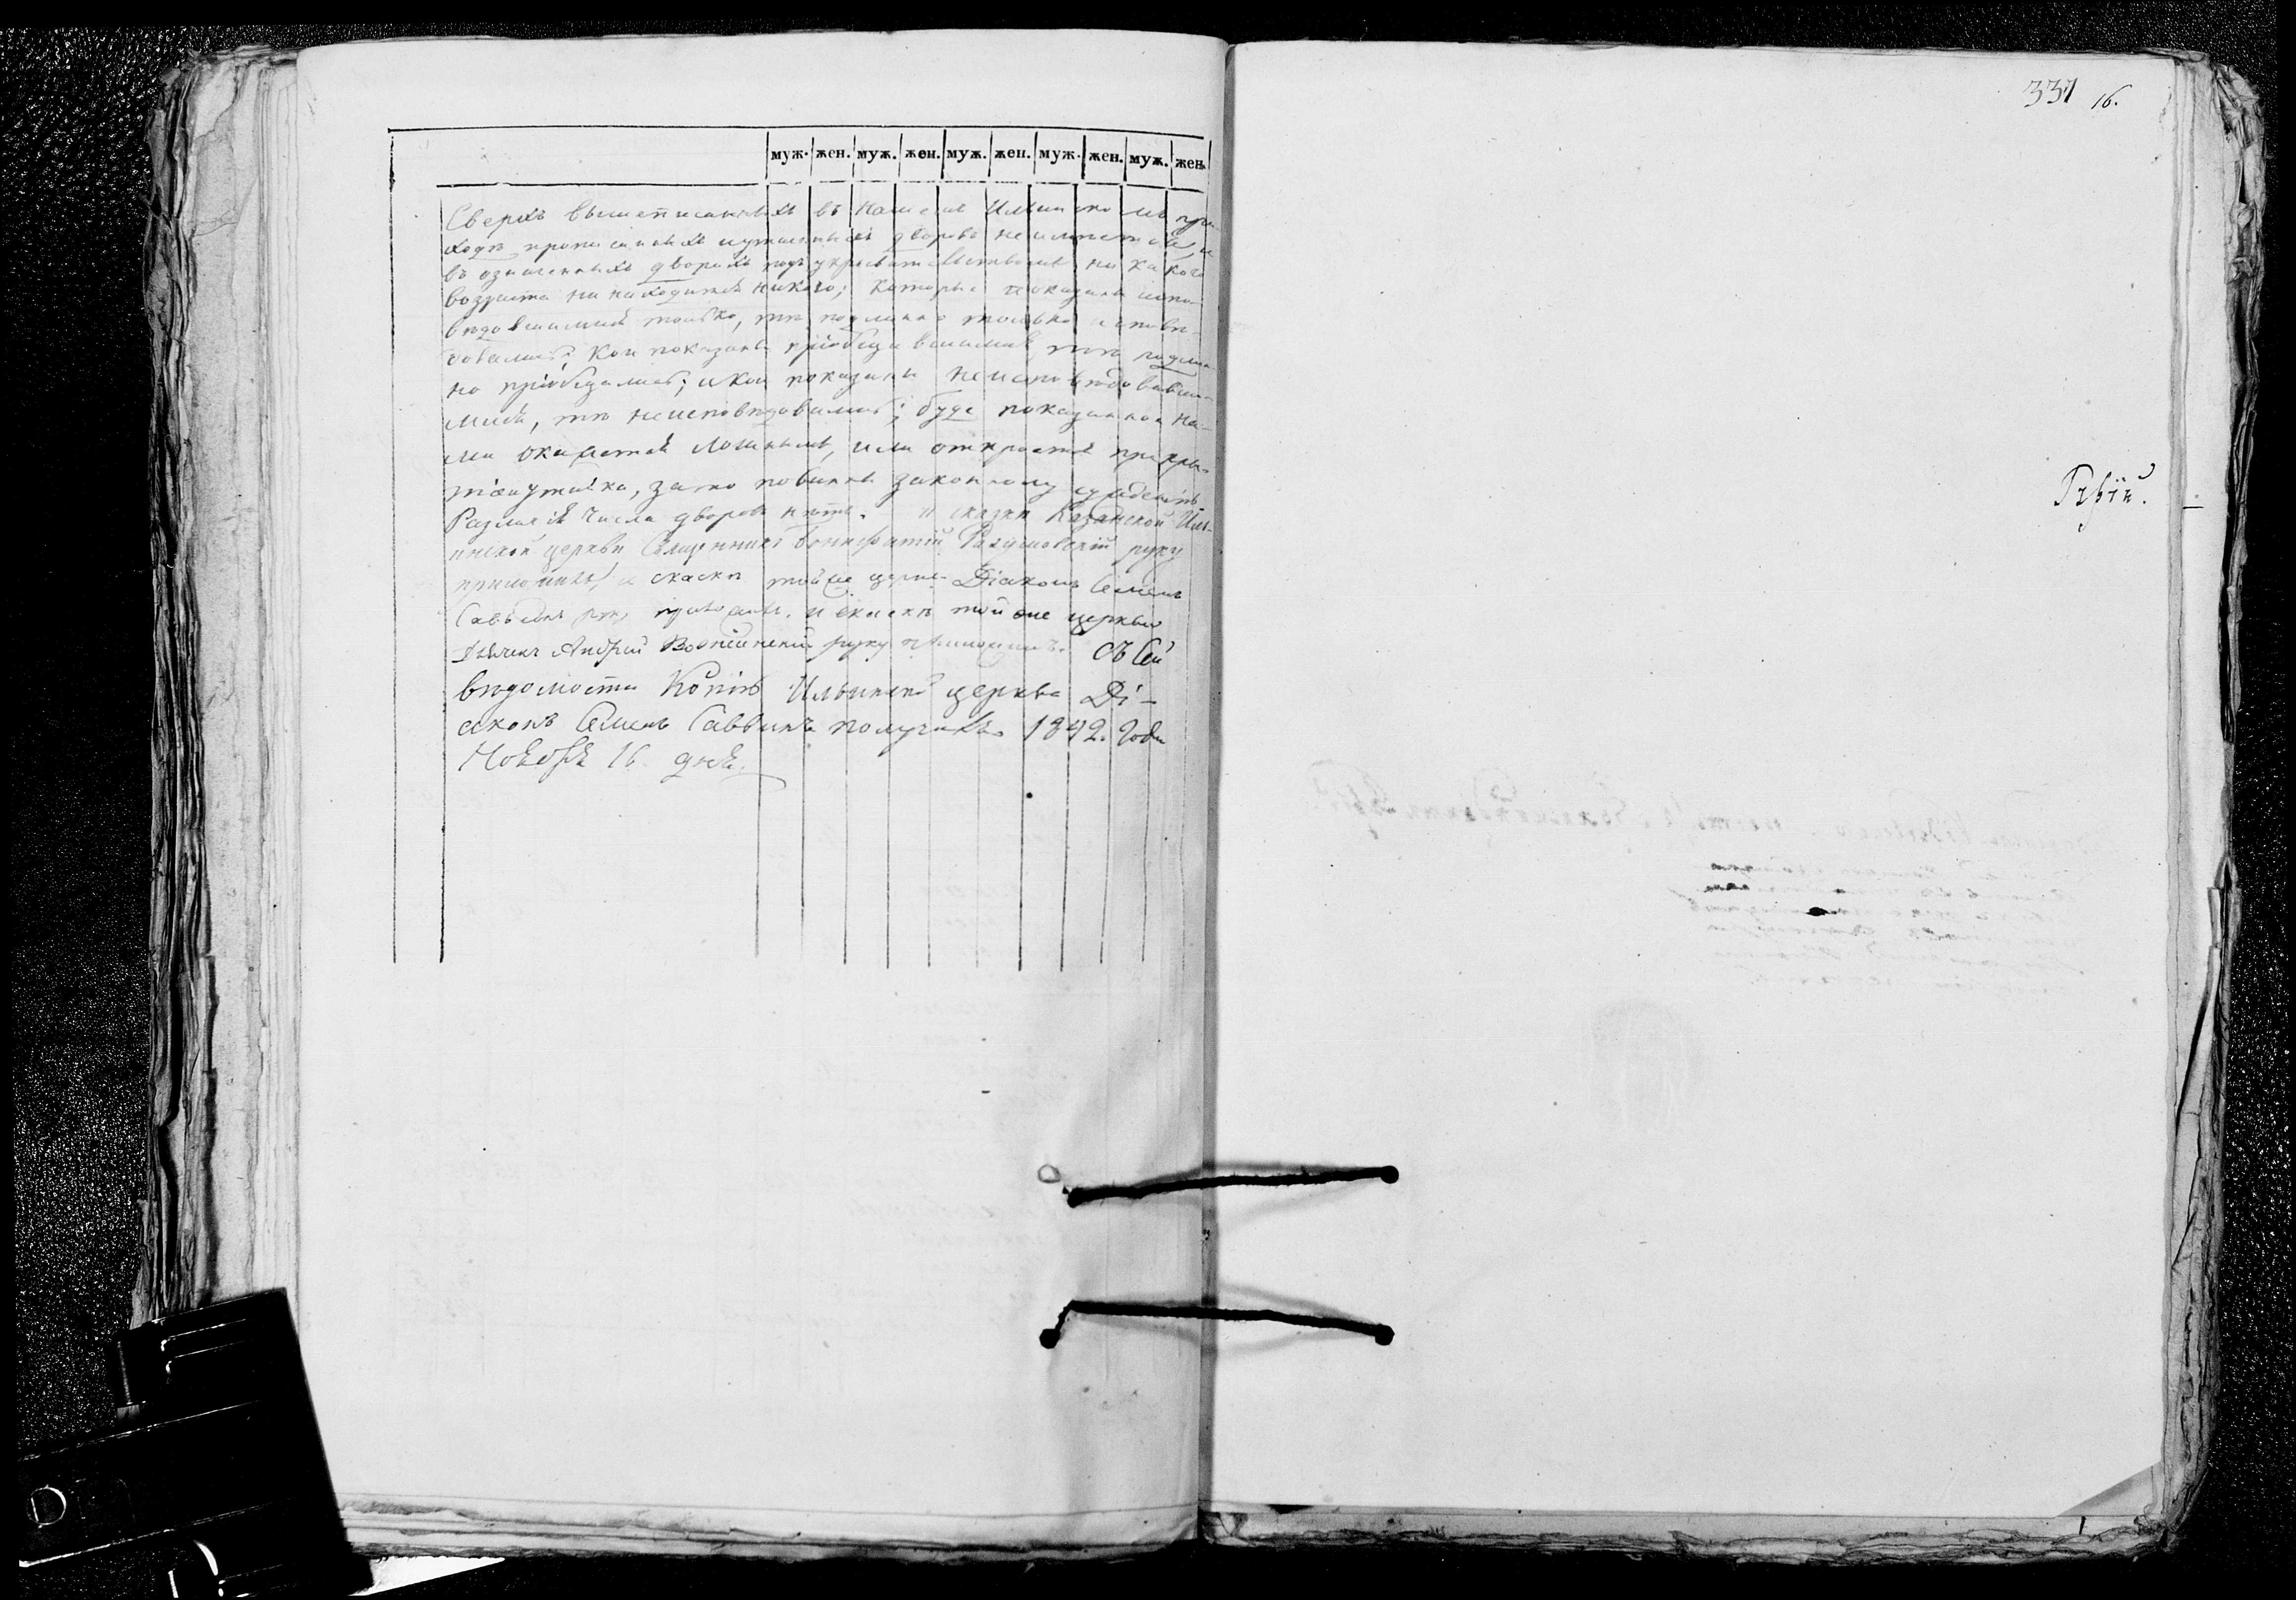 331 16.
муж. жен. муж. жен. муж. жен. муж. жен. муж. жен.
Сверхъ вышеписанныхъ въ нашемъ Ильинскомъ при-
ходѣ прописныхъ и утаенныхъ дворовъ неимѣется, и
въ означенныхъ дворахъ подъ укрывательствомъ ни какого
возраста ни находится никого; которые показаны испо-
вѣдовшимися токмо, тѣ подлинно только исповѣ-
довались; кои показаны пріобщившимися, тѣ подлин-
но пріобщались; и кои показаны неисповѣдовавши-
мися, тѣ неисповѣдовались; буде показанное на-
ми окажется ложнымъ, или откроется прикры-
тіе и утайка, за то повинны законному сужденію.
Различія числа дворовъ нѣтъ. К сказкѣ Казанской Иль-
инской церкви Священникъ Вонифатій Разумовскій руку
приложилъ, к сказкѣ той же церкви Діаконъ Семенъ
Саввинъ руку приложилъ. и сказкѣ той же церкви
Дьячекъ Андрей руку приложилъ. Съ сей
вѣдомости Копію Ильинской церкви Ді-
аконъ Семенъ Саввинъ получилъ. 1842. Года
Ноября 16. дня.